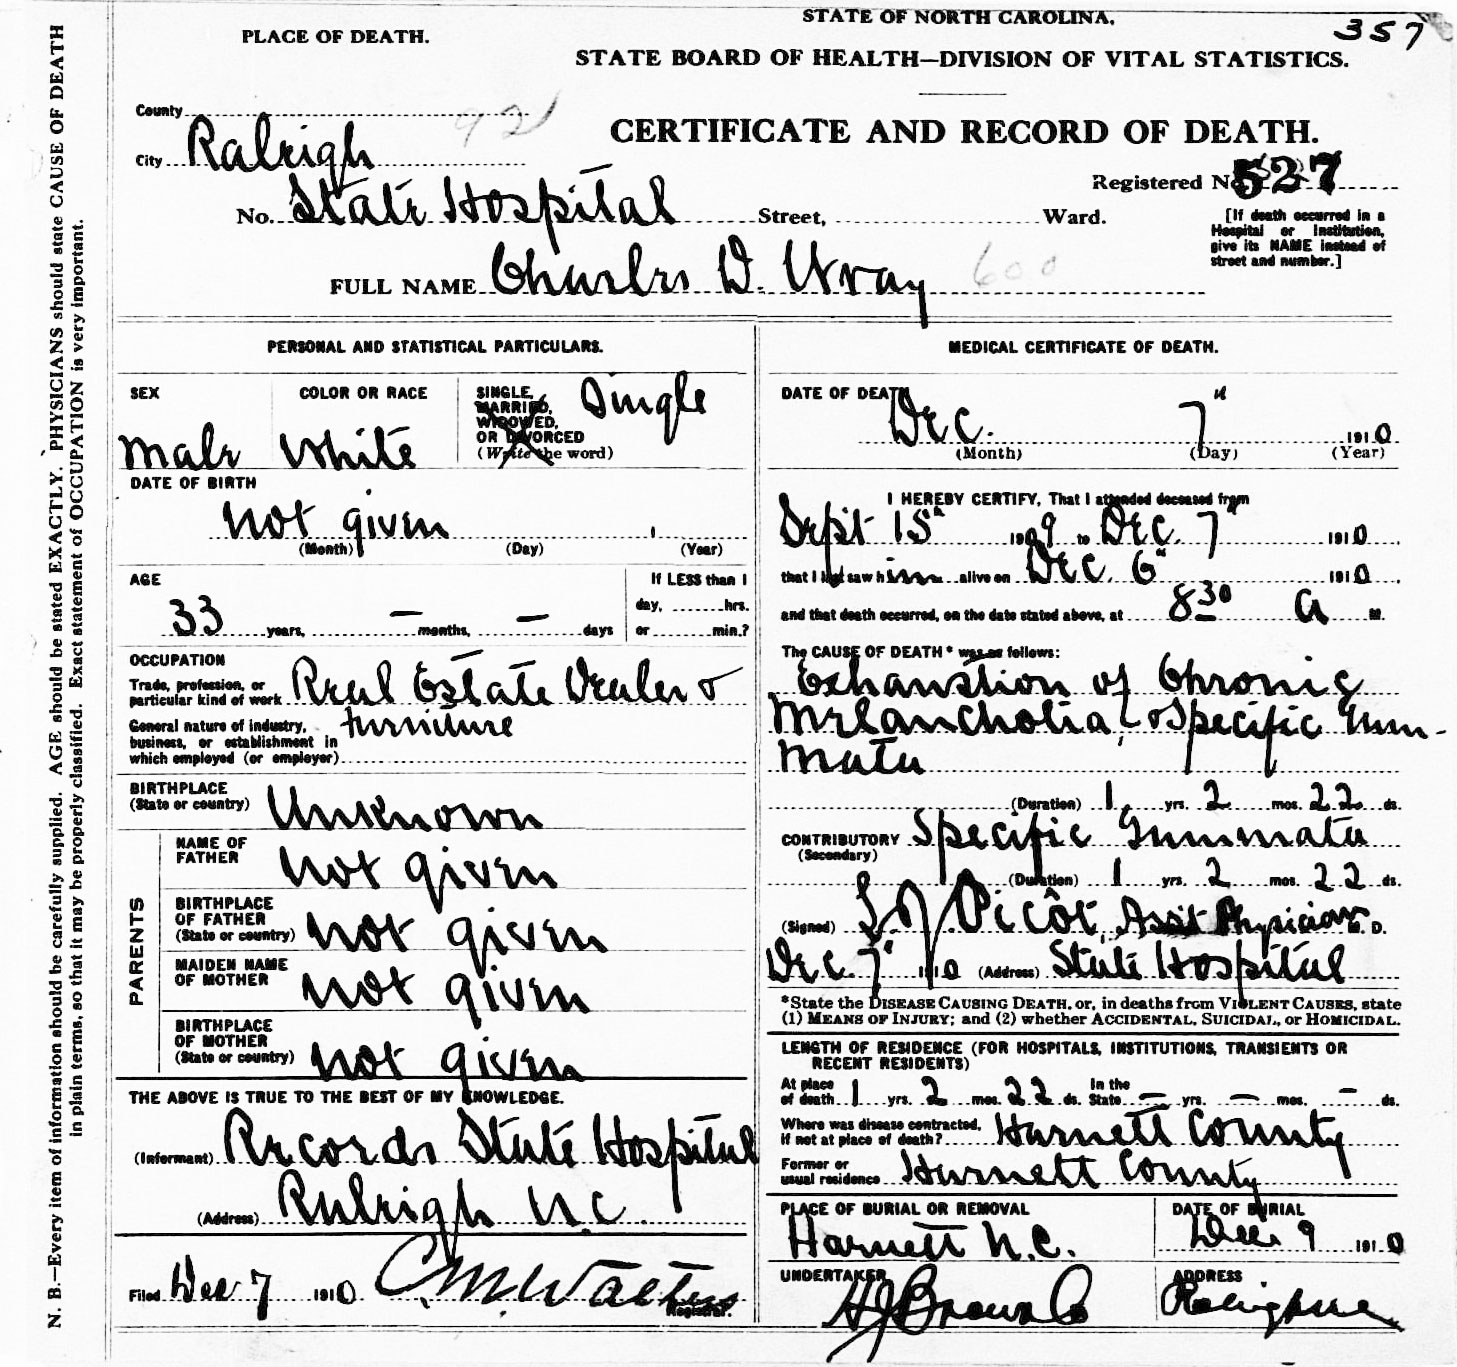 357
STATE OF NORTH CAROLINA,
STATE BOARD OF HEALTH—DIVISION OF VITAL STATISTICS.
CERTIFICATE AND RECORD OF DEATH.
PLACE OF DEATH.
County
City Raleigh
Registered No. 527
No. State Hospital Street, Ward.
[If death occurred in a
Hospital or Institution,
give its NAME instead of
street and number.]
FULL NAME Charles D. Wray 600
PERSONAL AND STATISTICAL PARTICULARS.
SEX
Male
COLOR OR RACE
White
SINGLE,
MARRIED,
WIDOWED,
OR DIVORCED
(Write the word)
Single
DATE OF BIRTH
not given
(Month) (Day) (Year)
AGE
33 years, — months, — days
If LESS than 1
day, hrs.
or min.?
OCCUPATION
Trade, profession, or
particular kind of work Real Estate Dealer &
General nature of industry, furniture
business, or establishment in
which employed (or employer)
BIRTHPLACE
(State or country) Unknown
PARENTS
NAME OF
FATHER not given
BIRTHPLACE
OF FATHER
(State or country) not given
MAIDEN NAME
OF MOTHER not given
BIRTHPLACE
OF MOTHER
(State or country) not given
THE ABOVE IS TRUE TO THE BEST OF MY KNOWLEDGE.
(Informant) Records State Hospital
(Address) Raleigh N.C.
Filed Dec 7 1910 C. M. Walters
Registrar.
MEDICAL CERTIFICATE OF DEATH.
DATE OF DEATH
Dec. 7" 1910
(Month) (Day) (Year)
I HEREBY CERTIFY, That I attended deceased from
Sept 15" 1909 to Dec. 7" 1910,
that I last saw him alive on Dec. 6" 1910,
and that death occurred, on the date stated above, at 8 30 A M.
The CAUSE OF DEATH* was as follows:
Exhaustion of Chronic
Melancholia, & Specific Gum-
mata
(Duration) 1 yrs. 2 mos. 22 ds.
CONTRIBUTORY Specific Gummata
(Secondary)
(Duration) 1 yrs. 2 mos. 22 ds.
(Signed) Picôt, Asst Physician M. D.
Dec. 7" 1910 (Address) State Hospital
*State the DISEASE CAUSING DEATH, or, in deaths from VIOLENT CAUSES, state
(1) MEANS OF INJURY; and (2) whether ACCIDENTAL, SUICIDAL, or HOMICIDAL.
LENGTH OF RESIDENCE (FOR HOSPITALS, INSTITUTIONS, TRANSIENTS OR
RECENT RESIDENTS)
At place
of death 1 yrs. 2 mos. 22 ds. In the
State — yrs. — mos. — ds.
Where was disease contracted,
if not at place of death? Harnett County
Former or
usual residence Harnett County
PLACE OF BURIAL OR REMOVAL
Harnett N.C.
DATE OF BURIAL
Dec. 9 1910
UNDERTAKER
H J Brown Co
ADDRESS
N. B.—Every item of information should be carefully supplied. AGE should be stated EXACTLY. PHYSICIANS should state CAUSE OF DEATH
in plain terms, so that it may be properly classified. Exact statement of OCCUPATION is very important.